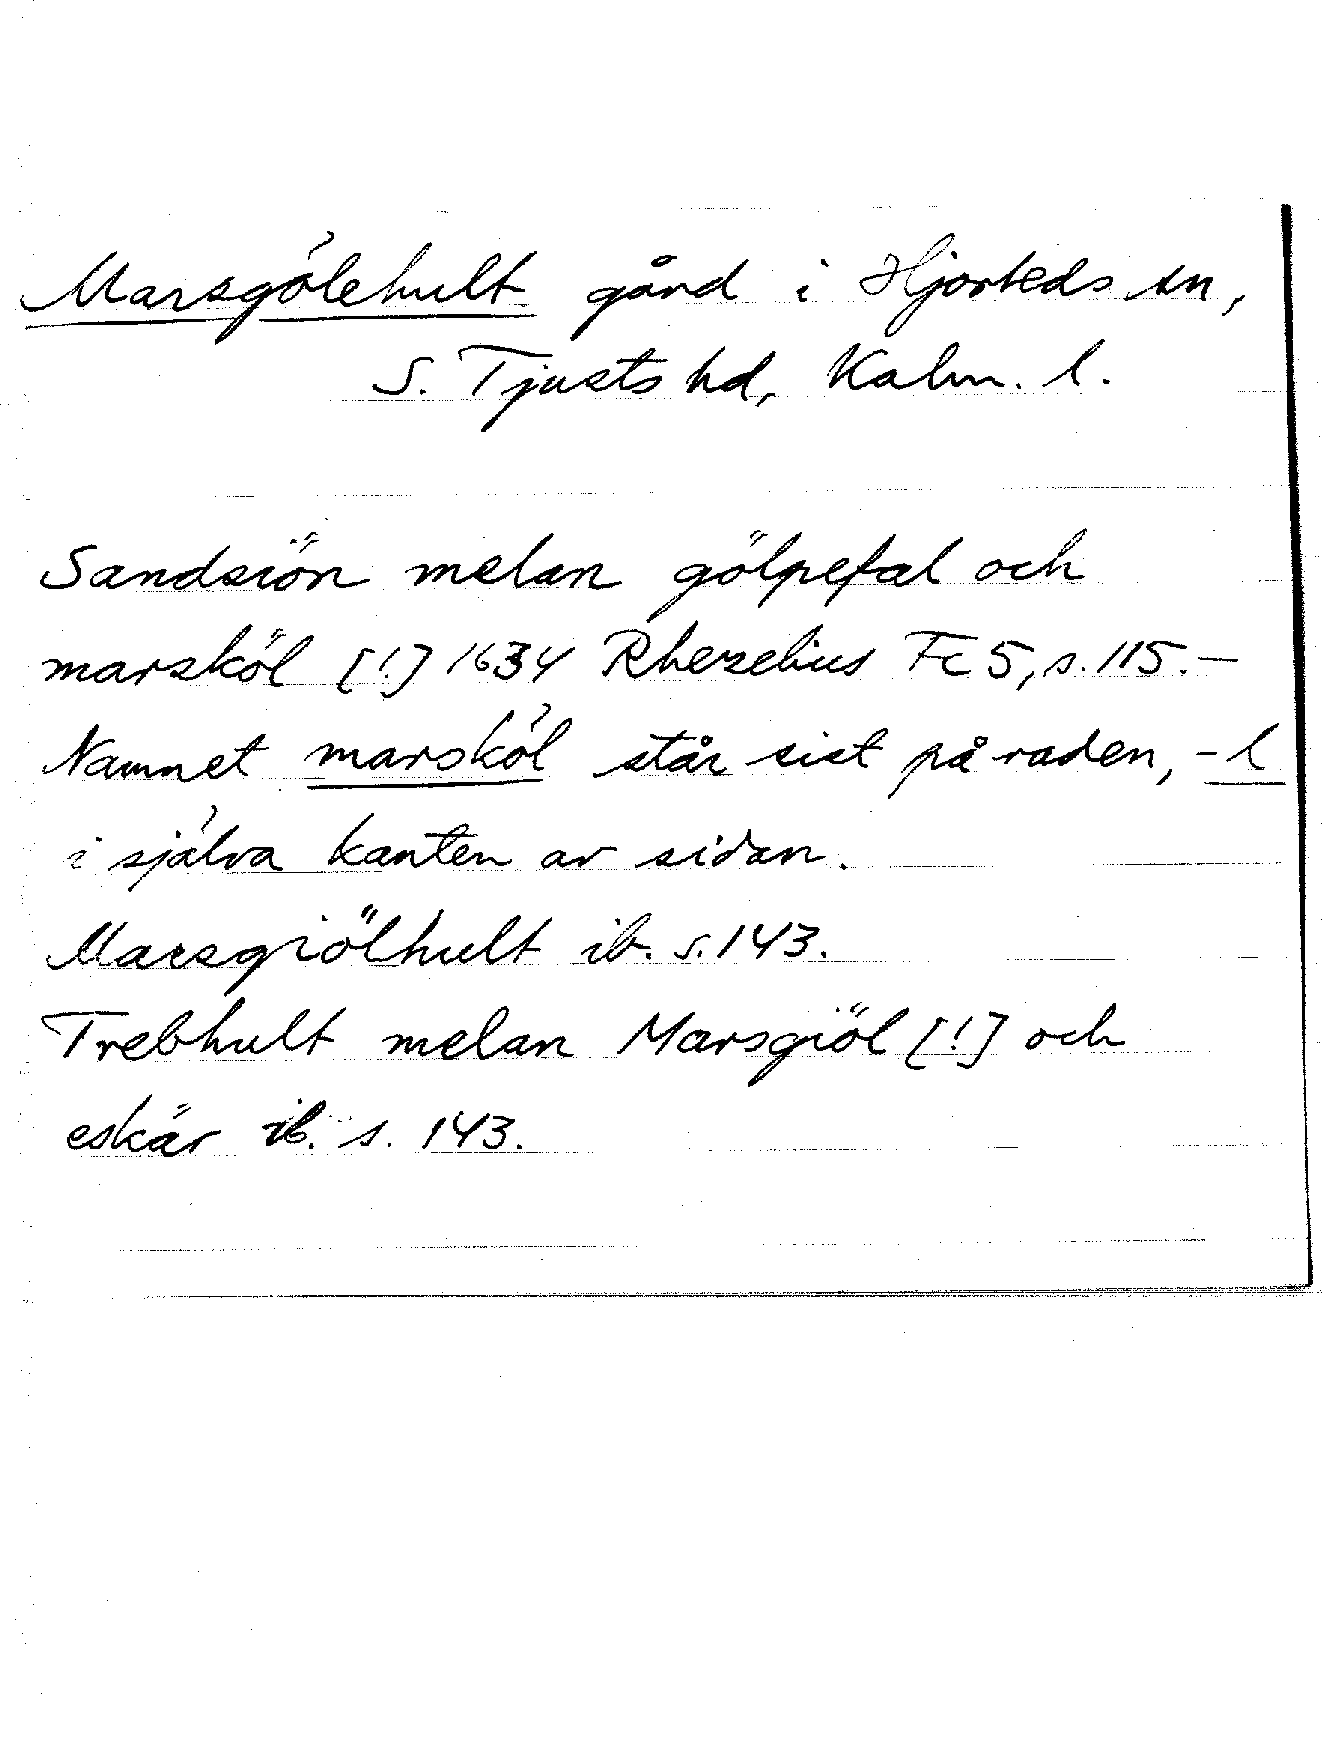 Marsgölehult gård i Hjorteds sn,
S. Tjusts hd, Kalm. l.
Sandsiön melan gölpefal och
marsköl [!] 1634 Rhezelius Fc 5, s. 115. –
Namnet marsköl står sist på raden, -l
i själva kanten av sidan.
Marsgiölhult ib. s. 143.
Trebhult melan Marsgiöl [!] och
eskär ib. s. 143.